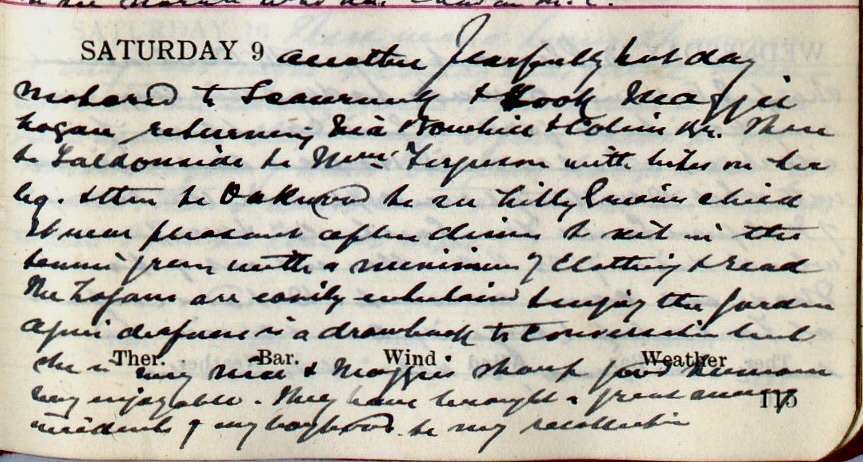 SATURDAY 9 another fearfully hot day
motored to & took Maggie
Logan returning via & Colin Br. Then
to Faldonside to Mrs Ferguson with bites on her
leg. & then to Oakwood to see child
It was pleasant after dinner to sit in the
tennis green with a minimum of clothing & read
The Logans are easily entertained & enjoy the garden
deafness is a drawback to conversation but
Ther. Bar. Wind Weather
she is very nice & Maggie's sharp good humour
very enjoyable. They have brought a great many
115
incidents of my boyhood to my recollection